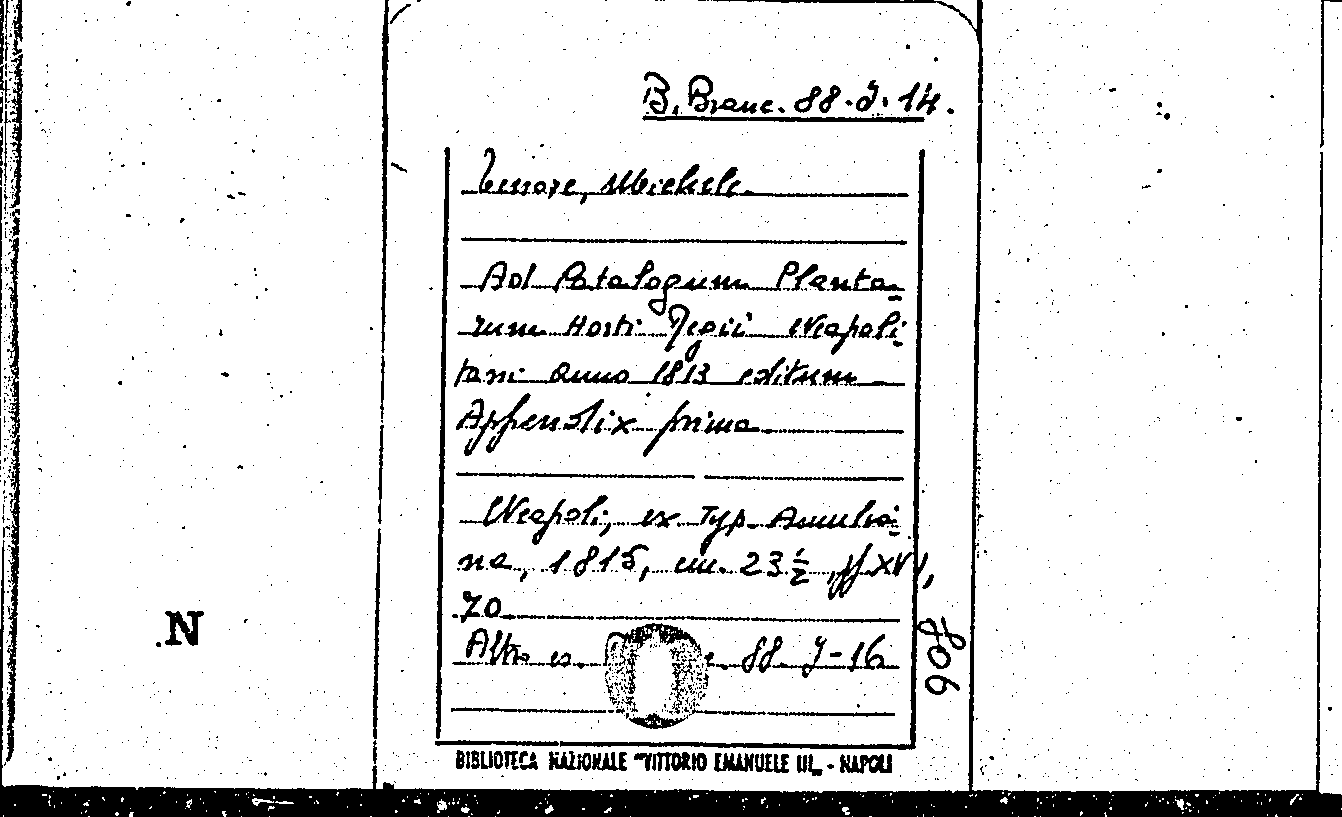 B. Branc. 88. J. 14.
Tenore, Michele
Ad Catalogum Planta-
rum Horti Regii Neapoli-
tani anno 1813 editum
Appendix prima
Neapoli, ex Typ. Amulia-
na, 1815, cm. 23 ½, pp XVI,
70
Altro es. 88 J-16
806
N
BIBLIOTECA NAZIONALE "VITTORIO EMANUELE III„ - NAPOLI